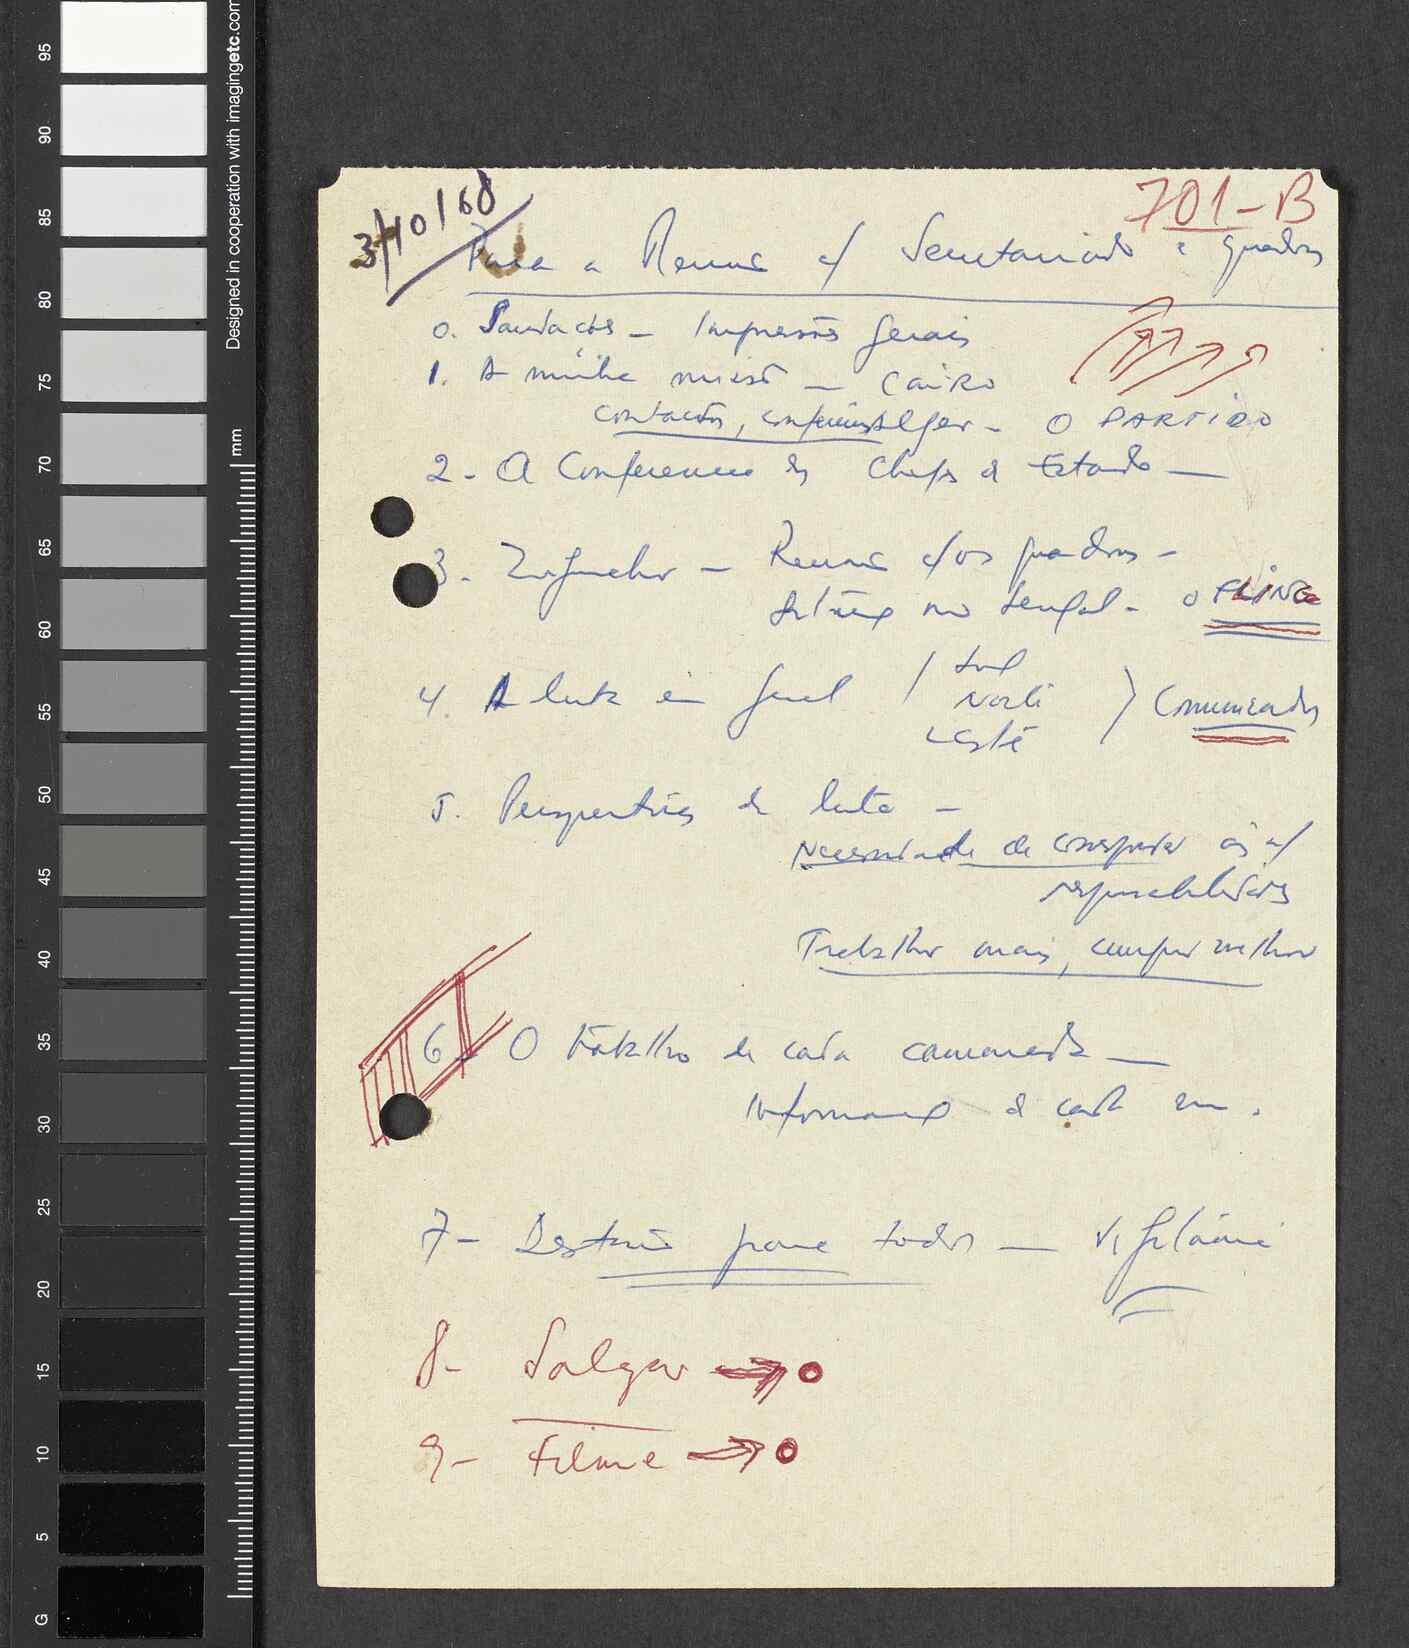 701-B
3/10/68
Para a Reunião c/ Secretariado e quadros
0. Saudações - Impressões gerais
1. A minha missão - CAIRO
contactos, conferências Alger - O PARTIDO
2 - A Conferencia dos Chefes de Estado -
3. Ziguinchor - Reunião c/os quadros -
Situação no Senegal - o FLING
4. A luta em geral / Sul
Norte
Leste
) Comunicados
5. Perspectivas da luta -
Necessidade de
responsabilidades
Trabalhar mais, cumprir melhor
6. O trabalho de cada camarada -
Informação de cada um.
7 - para todos - Vigilância
8 -
9 - Filme → o
Designed in cooperation with imagingetc.com
mm
95
90
85
80
75
70
65
60
55
50
45
40
35
30
25
20
15
10
5
G